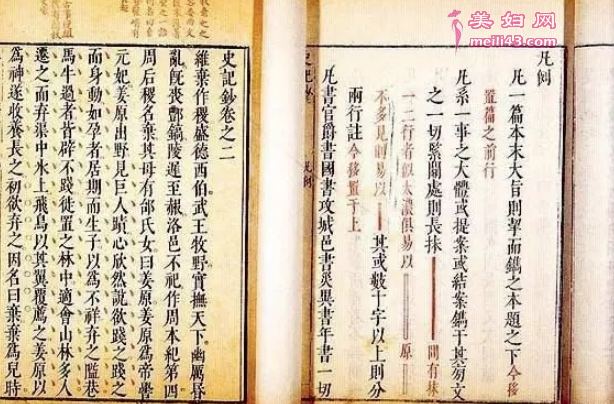 美妇网
meili43.com
凡例
凡一篇本末大旨則揫而鐫之本題之下今移
置篇之前行
凡系一事之大體或提案或結案鐫于其旁文
之一切緊關處則長抹 間有抹
一二行者似太濃俱易以 原
不多見則易以 其或數十字以上則分
兩行註今移置于上
凡書官爵書國書攻城邑書災異書年書一切
凡例
史記鈔卷之二
維棄作稷盛德西伯武王牧野實撫天下幽厲昏
亂既喪酆鎬陵遲至赧洛邑不祀作周本紀第四
周后稷名棄其母有邰氏女曰姜原姜原爲帝嚳
元妃姜原出野見巨人蹟心欣然說欲踐之踐之
而身動如孕者居期而生子以爲不祥棄之隘巷
馬牛過者皆辟不踐徙置之林中適會山林多人
遷之而棄渠中冰上飛鳥以其翼覆薦之姜原以
爲神遂收養長之初欲棄之因名曰棄棄爲兒時